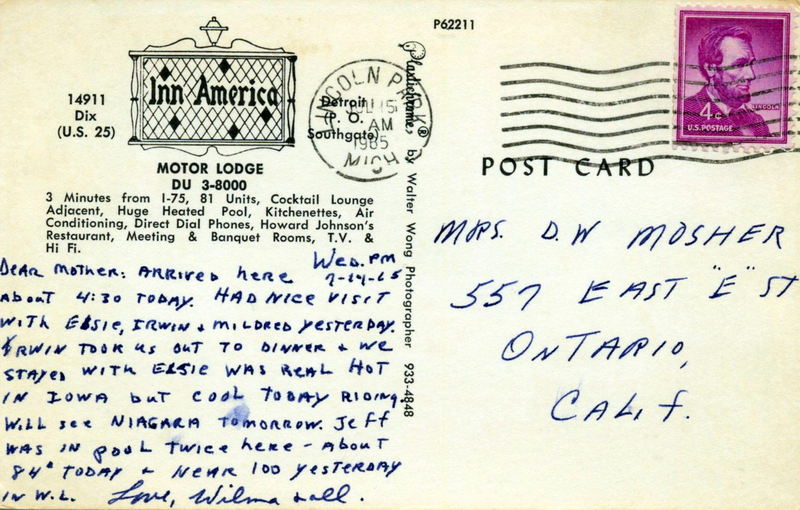 P62211
Inn America
14911
Dix
(U.S. 25)
Detroit
(P. O.
Southgate)
MOTOR LODGE
DU 3-8000
3 Minutes from I-75, 81 Units, Cocktail Lounge
Adjacent, Huge Heated Pool, Kitchenettes, Air
Conditioning, Direct Dial Phones, Howard Johnson's
Restaurant, Meeting & Banquet Rooms, T.V. &
Hi Fi.
Wed. PM
7-14-65
Dear Mother: Arrived here
about 4:30 today. Had nice visit
with Elsie, Irwin & Mildred yesterday.
Irwin took us out to dinner & we
stayed with Elsie was real hot
in Iowa but cool today riding.
Will see Niagara tomorrow. Jeff
was in pool twice here - about
84° today & near 100 yesterday
in W.L. Love, Wilma & all.
Plastichrome® by Walter Wong Photographer 933-4848
LINCOLN PARK
JUL 15
AM
1965
MICH
4¢
LINCOLN
U.S. POSTAGE
POST CARD
Mrs. D.W Mosher
557 East "E" St
Ontario,
Calif.